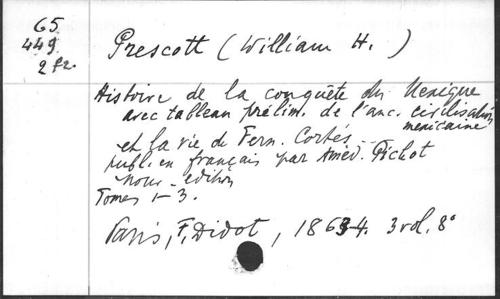 65
449
2 fz.
Prescott (William H. )
Histoire de la conquête du Mexique
avec tableau prélim. de l'anc. civilisation
mexicaine
et la vie de Fern. Cortés.
publ. en français par Améd. Pichot
Nouv. edition
Tomes 1-3.
Paris, F. Didot, 1864. 3 vol. 8°